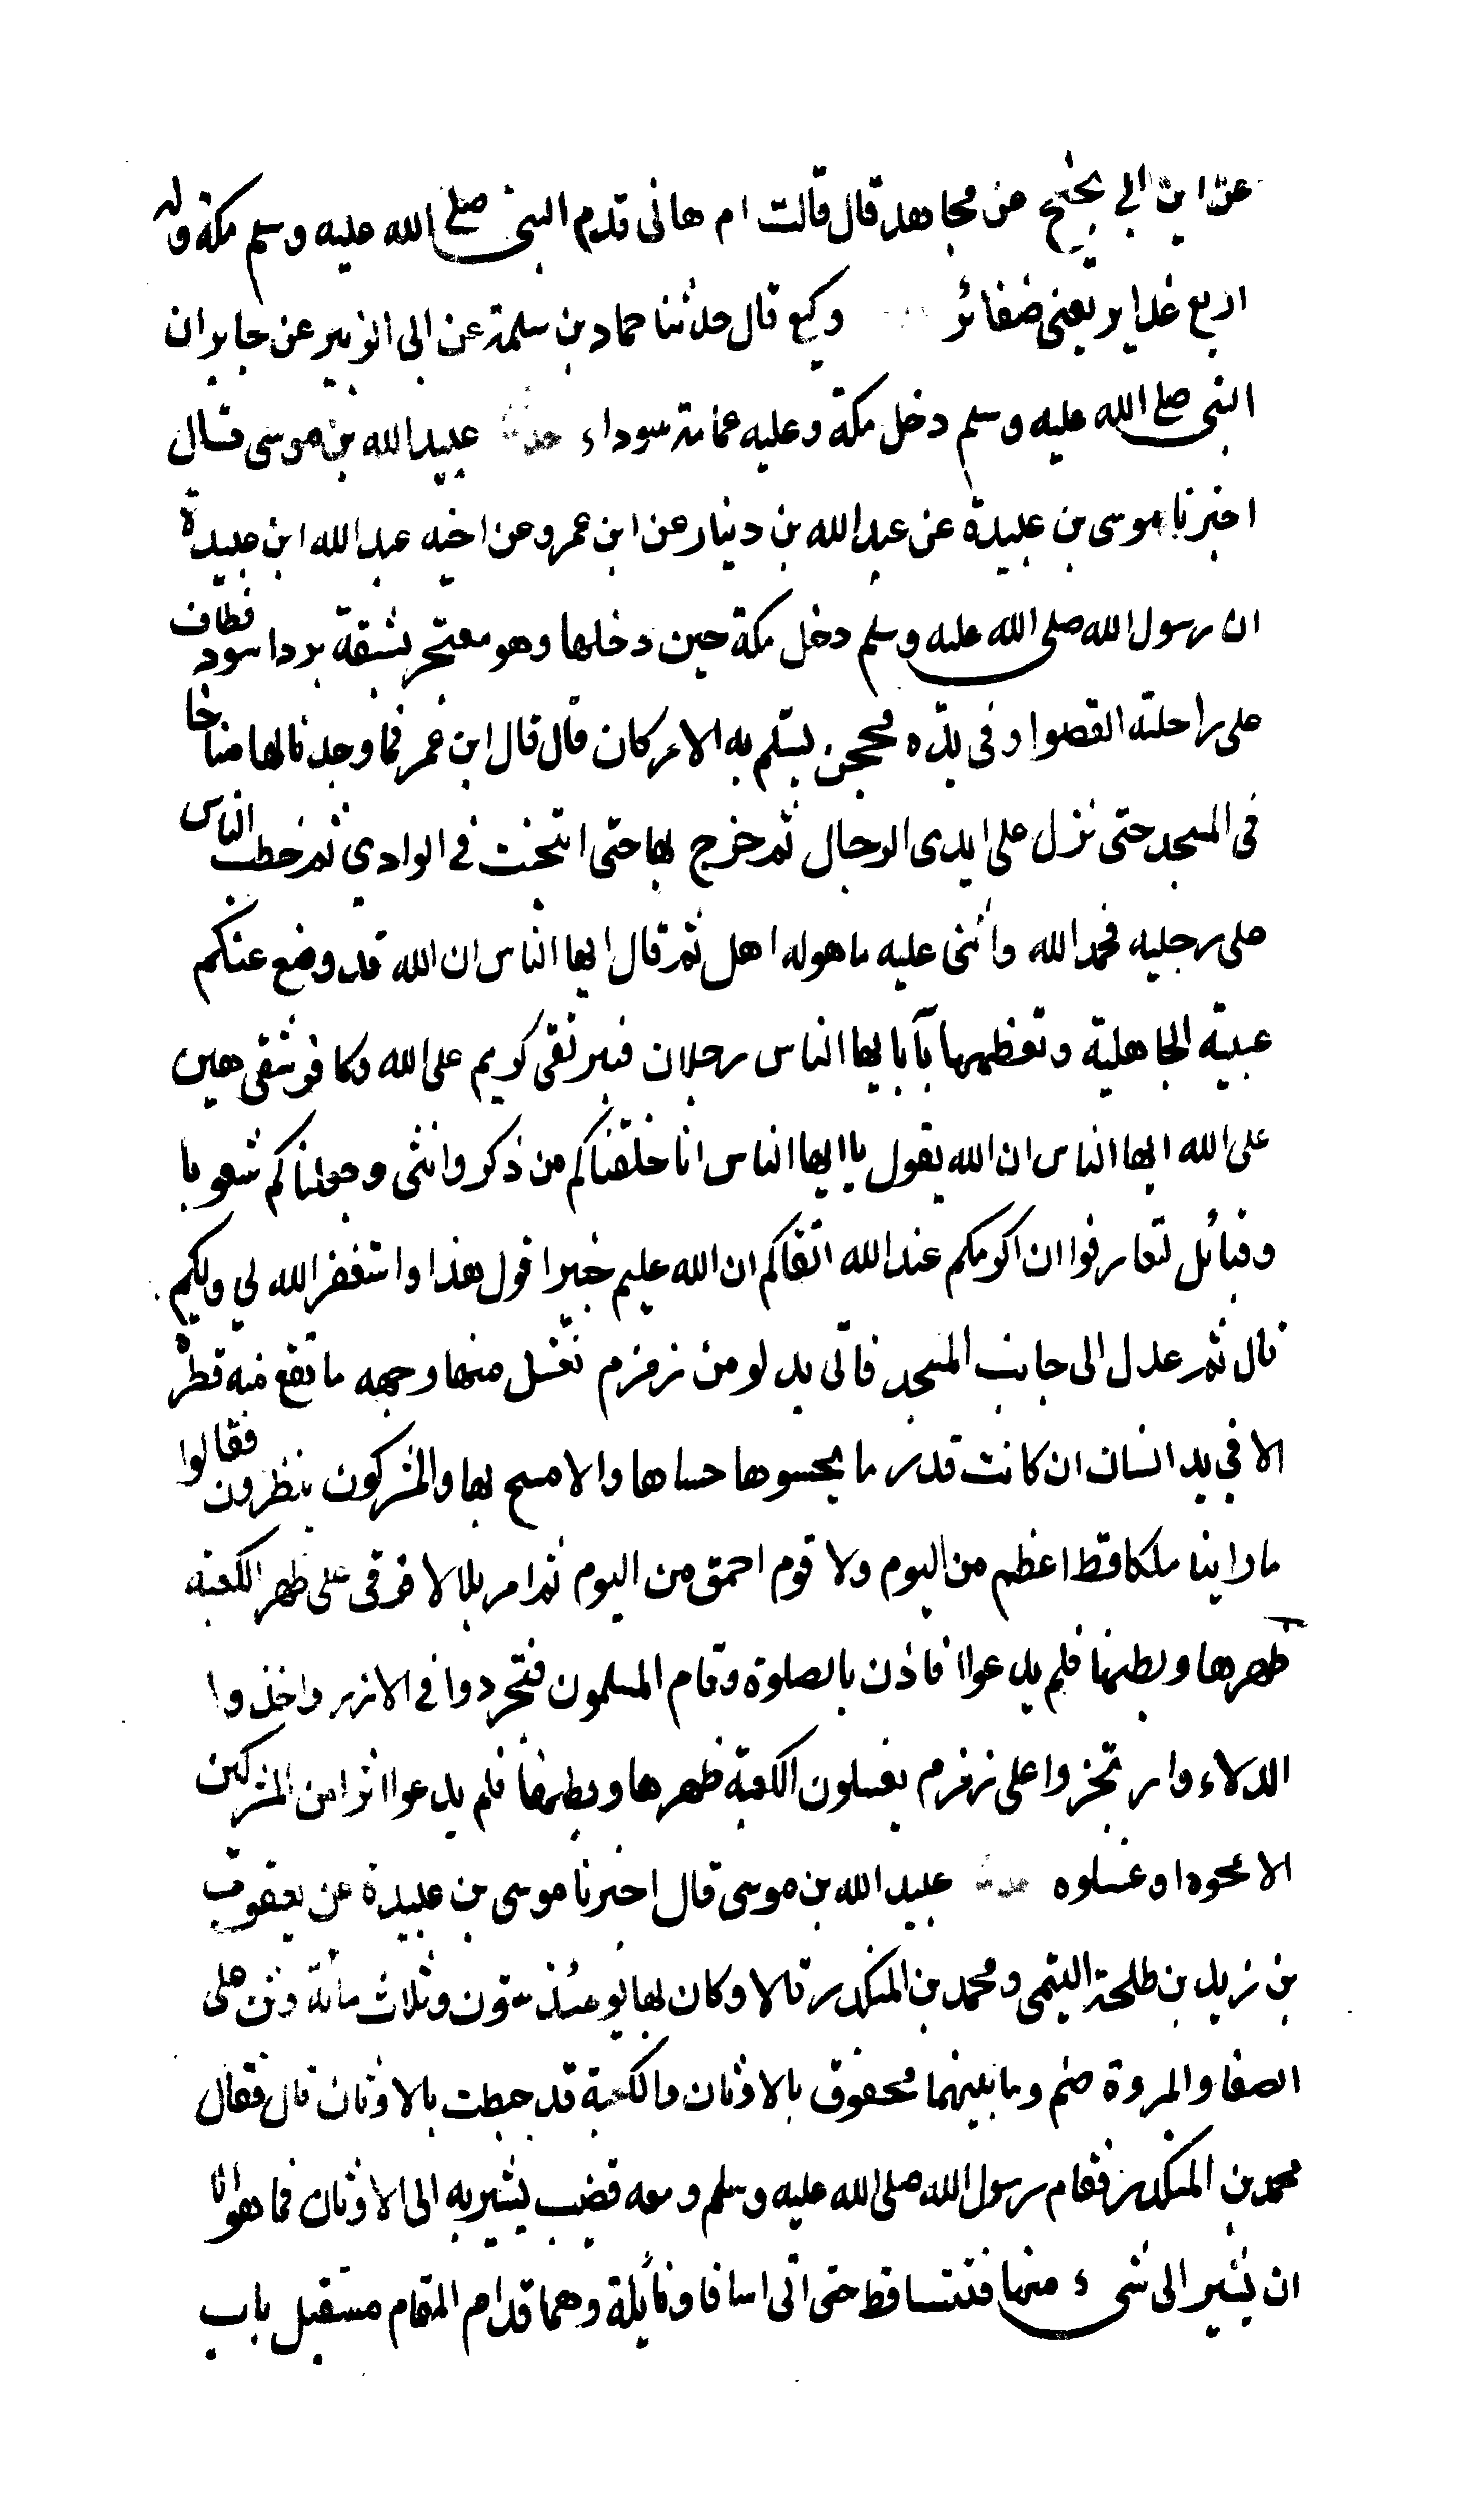 عن ابن ابي نجيح عن مجاهد قال قالت ام هانى قدم النبي صلى الله عليه وسلم مكة وله
اربع غداير يعنى ضفائر وكيع قال حدثنا حماد بن سلمة عن ابى الزبير عن جابر ان
النبي صلى الله عليه وسلم دخل مكة وعليه عمامة سوداء حدثنا عبيد الله بن موسى قال
اخبرنا موسى بن عبيدة عن عبد الله بن دينار عن ابن عمر وعن اخيه عبد الله ابن عبيدة
ان رسول الله صلى الله عليه وسلم دخل مكة حين دخلها وهو معتجر بشقة برد اسود فطاف
على راحلته القصوا وفى يده محجن يستلم به الاركان قال قال ابن عمر فما وجدنا لها مناخا
فى المسجد حتى نزل على ايدى الرجال ثم خرج بها حتى انتخت فى الوادي ثم خطب الناس
على رجليه فحمد الله واثنى عليه ما هو له اهل ثم قال ايها الناس ان الله قد وضع عنكم
عبية الجاهلية وتعظمها بآبا يها الناس رجلان فبر تقى كريم على الله وكافر شقى هين
على الله ايها الناس ان الله يقول يا ايها الناس انا خلقناكم من ذكر وانثى وجعلناكم شعوبا
وقبائل لتعارفوا ان اكرمكم عند الله اتقاكم ان الله عليم خبير اقول هذا واستغفر الله لي ولكم
قال ثم عدل الى جانب المسجد فاتى بدلو من زمزم تغسل منها وجهه ما تقع منه قطرة
الا في يد انسان ان كانت قدر ما يحسوها حساها والا مسح بها والمشركون ينظرون فقالوا
ما راينا ملكا قط اعظم من اليوم ولا قوم احمق من اليوم ثم امر بلالا فرقى على ظهر الكعبة
ظهرها وبطنها فلم يدعوا فاذن بالصلوة وقام المسلمون فتجردوا فى الازر واخذوا
الدلاء وارتجزوا على زمزم يغسلون الكعبة ظهرها وبطنها فلم يدعوا اثرا من المشركين
الا محوه او غسلوه حدثنا عبيد الله بن موسى قال اخبرنا موسى بن عبيدة عن يعقوب
بن زيد بن طلحة التيمى ومحمد بن المنكدر قالا وكان بها يومئذ ستون وثلاث مائة وثن على
الصفا والمروة صنم وما بينهما محفوف بالاوثان والكعبة قد حيطت بالاوثان قال فقال
محمد بن المنكدر فقام رسول الله صلى الله عليه وسلم ومعه قضيب يشير به الى الاوثان فما هو انا
ان يشير الى شىء منها فتتساقط حتى اتى اسافا ونائلة وهما قدام المقام مستقبل باب